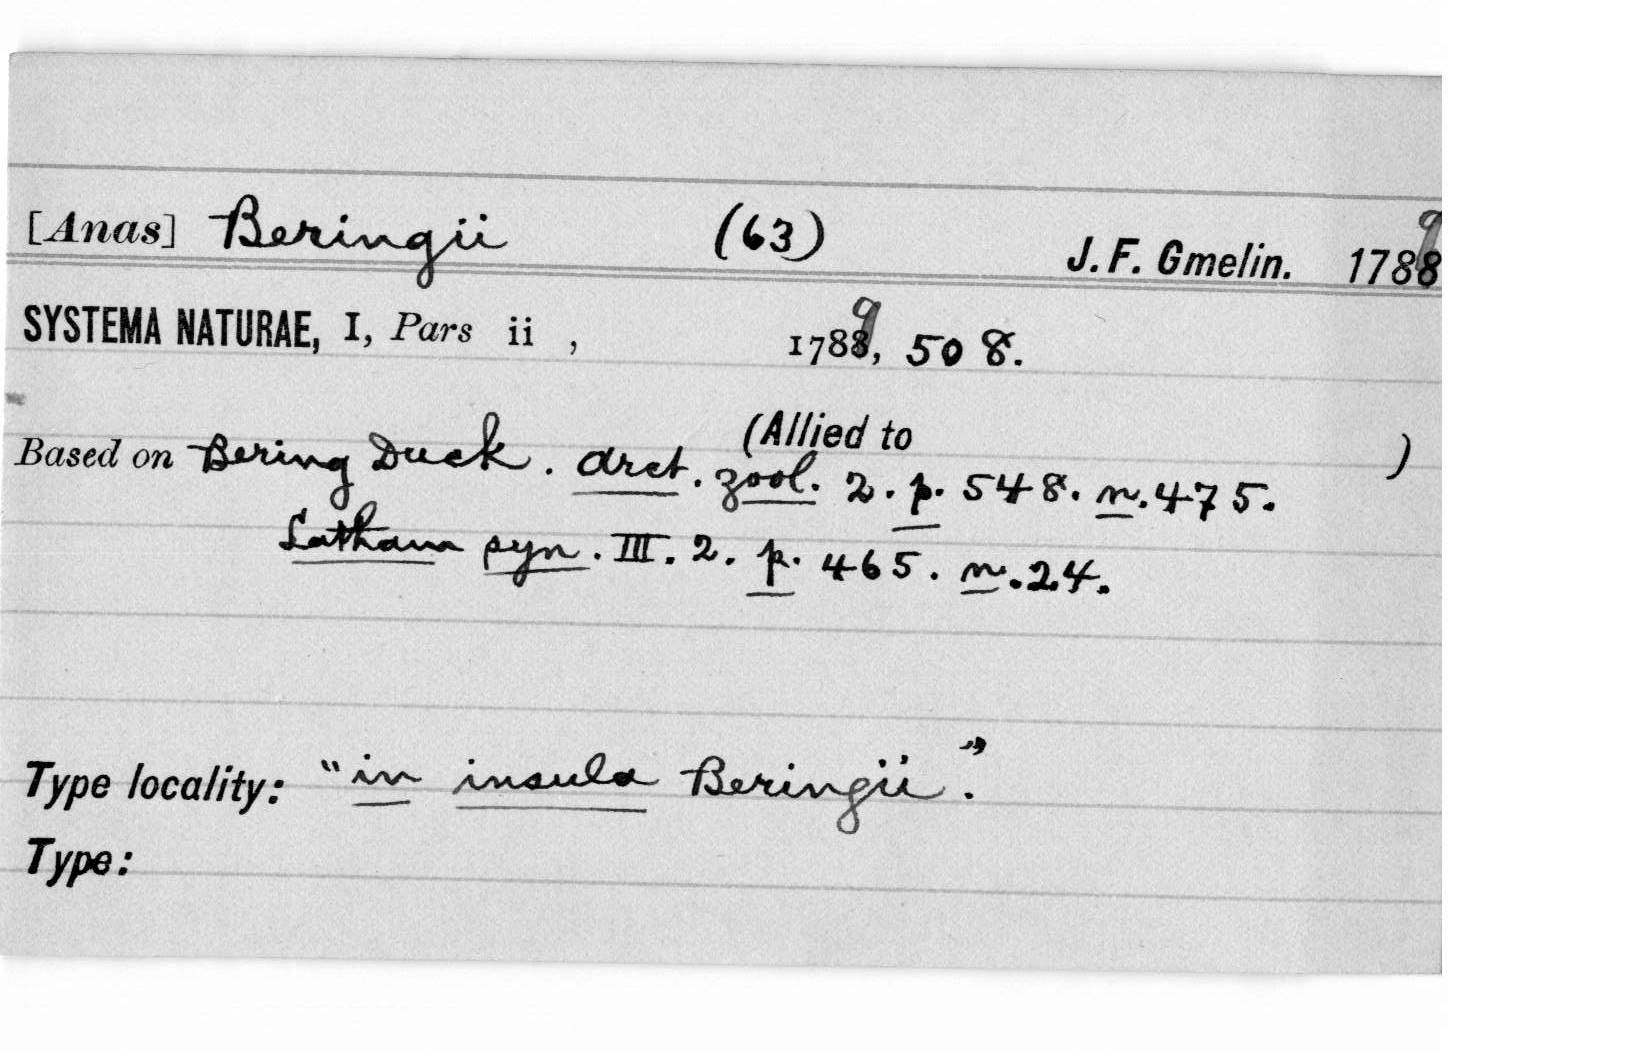 [Anas] Beringii (63) J. F. Gmelin. 1789
SYSTEMA NATURAE, I, Pars ii , 1789, 508.
(Allied to )
Based on Bering Duck. arct. zool. 2. p. 548. n. 475.
Latham syn. III. 2. p. 465. n. 24.
Type locality: "in insula Beringii."
Type: